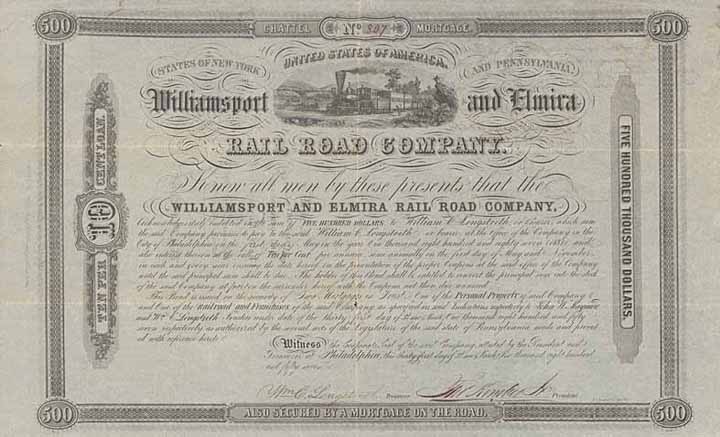 500
CHATTEL Nº 397 MORTGAGE.
500
UNITED STATES OF AMERICA.
STATES OF NEW YORK
AND PENNSYLVANIA
Williamsport and Elmira
RAIL ROAD COMPANY.
Know all men by these presents that the
WILLIAMSPORT AND ELMIRA RAIL ROAD COMPANY.
sum of FIVE HUNDRED DOLLARS to William C. Longstreth or bearer, which sum
the said Company promises to pay to the said William C. Longstreth or bearer at the office of the Company in the
City of Philadelphia on the first day of May in the year One thousand eight hundred and eighty seven (1887) and
also interest thereon at the rate of Ten per Cent per annum semi annually on the first day of May and November
in each and every year ensuing the date hereof on the presentation of the proper Coupons at the said office of the Company
until the said principal sum shall be due. The holder of this Bond shall be entitled to convert the principal sum into the stock
of the said Company at par on the surrender hereof with the Coupons not then due annexed.
This Bond is issued on the security of Two Mortgages in Trust One of the Personal Property of said Company &
One of the Railroad and Franchises of the said Company as specified in said Indentures respectively to John W.
and Wm C. Longstreth Trustees under date of the thirty first day of March One thousand eight hundred and fifty
seven respectively as authorized by the several acts of the Legislature of the said state of Pennsylvania made and provided
with reference hereto.
Witness the Corporate Seal of the said Company attested by the President and
Treasurer at Philadelphia, this thirty first day of March One thousand eight hundred
and fifty seven.
Wm C. Longstreth Treasurer President
TEN PER CENT LOAN.
10
FIVE HUNDRED THOUSAND DOLLARS.
500
ALSO SECURED BY A MORTGAGE ON THE ROAD.
500